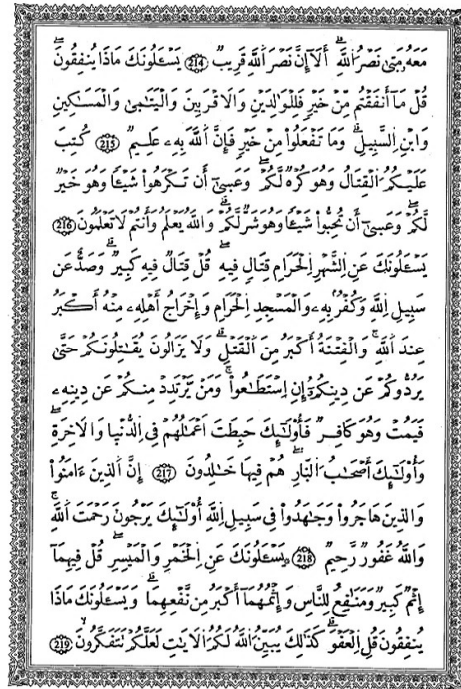 مَعَهُۥ مَتَىٰ نَصْرُ اُللَّهِۖ أَلَآ إِنَّ نَصْرَ اَللَّهِ قَرِيبٞۖ 214 يَسْـَٔلُونَكَ مَاذَا يُنفِقُونَۖ
قُلْ مَآ أَنفَقْتُم مِّنْ خَيْرٖ فَلِلْوَٰلِدَيْنِ وَالَاقْرَبِينَ وَالْيَتَٰمَىٰ وَالْمَسَٰكِينِ
وَابْنِ اِلسَّبِيلِۖ وَمَا تَفْعَلُواْ مِنْ خَيْرٖ فَإِنَّ اَللَّهَ بِهِۦ عَلِيمٞۖ 215 كُتِبَ
عَلَيْكُمُ اُلْقِتَالُ وَهُوَ كُرْهٞ لَّكُمْۖ وَعَسَىٰٓ أَن تَكْرَهُواْ شَيْـٔاٗ وَهُوَ خَيْرٞ
لَّكُمْۖ وَعَسَىٰٓ أَن تُحِبُّواْ شَيْـٔاٗ وَهُوَ شَرّٞ لَّكُمْۖ وَاللَّهُ يَعْلَمُ وَأَنتُمْ لَا تَعْلَمُونَۖ 216
يَسْـَٔلُونَكَ عَنِ اِلشَّهْرِ اِلْحَرَامِ قِتَالٖ فِيهِۖ قُلْ قِتَالٞ فِيهِ كَبِيرٞۖ وَصَدٌّ عَن
سَبِيلِ اِللَّهِ وَكُفْرُۢ بِهِۦ وَالْمَسْجِدِ اِلْحَرَامِ وَإِخْرَاجُ أَهْلِهِۦ مِنْهُ أَكْبَرُ
عِندَ اَللَّهِۖ وَالْفِتْنَةُ أَكْبَرُ مِنَ اَلْقَتْلِۖ وَلَا يَزَالُونَ يُقَٰتِلُونَكُمْ حَتَّىٰ
يَرُدُّوكُمْ عَن دِينِكُمُۥٓ إِنِ اِسْتَطَٰعُواْۖ وَمَن يَرْتَدِدْ مِنكُمْ عَن دِينِهِۦ
فَيَمُتْ وَهُوَ كَافِرٞ فَأُوْلَٰٓئِكَ حَبِطَتَ اَعْمَٰلُهُمْ فِي اِلدُّنْيَا وَالَاخِرَةِۖ
وَأُوْلَٰٓئِكَ أَصْحَٰبُ اُلنَّارِۖ هُمْ فِيهَا خَٰلِدُونَ 217 إِنَّ اَلذِينَ ءَامَنُواْ
وَالذِينَ هَاجَرُواْ وَجَٰهَدُواْ فِي سَبِيلِ اِللَّهِ أُوْلَٰٓئِكَ يَرْجُونَ رَحْمَتَ اَللَّهِۖ
وَاللَّهُ غَفُورٞ رَّحِيمٞۖ 218 يَسْـَٔلُونَكَ عَنِ اِلْخَمْرِ وَالْمَيْسِرِۖ قُلْ فِيهِمَآ
إِثْمٞ كَبِيرٞ وَمَنَٰفِعُ لِلنَّاسِ وَإِثْمُهُمَآ أَكْبَرُ مِن نَّفْعِهِمَاۖ وَيَسْـَٔلُونَكَ مَاذَا
يُنفِقُونَ قُلِ اِلْعَفْوَۖ كَذَٰلِكَ يُبَيِّنُ اُللَّهُ لَكُمُ اُلَايَٰتِ لَعَلَّكُمْ تَتَفَكَّرُونَ 219